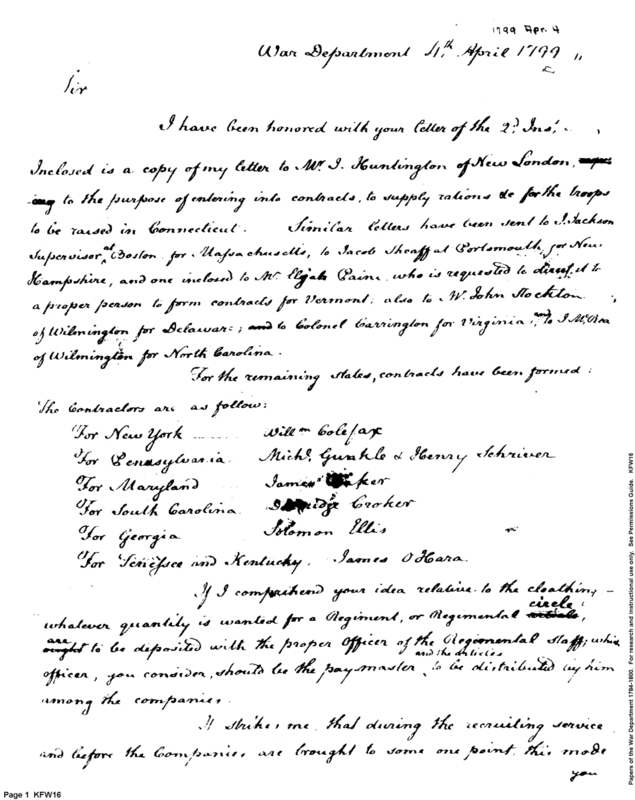 1799 Apr. 4
War Department 4th April 1799
Sir
I have been honored with your letter of the 2d. Inst.
Inclosed is a copy of my letter to Mr. J. Huntington of New London,
to the purpose of entering into contracts, to supply rations &c for the troops
to be raised in Connecticut. Similar letters have been sent to J. Jackson
Supervisor at Boston for Massachusetts, to Jacob Sheaff at Portsmouth for New
Hampshire, and one inclosed to Mr. Elijah Paine who is requested to direct it to
a proper person to form contracts for Vermont; also to W. John Stockton
of Wilmington for Delaware; and to Colonel Carrington for Virginia, and to J. McRea
of Wilmington for North Carolina.
For the remaining states, contracts have been formed:
The Contractors are as follow:
For New York Willm Colefax
For Pennsylvania Michl. Gunkle & Henry Schriver
For Maryland James Baker
For South Carolina Croker
For Georgia Solomon Ellis
For Tennessee and Kentucky. James OHara.
If I comprehend your idea relative to the cloathing –
whatever quantity is wanted for a Regiment, or Regimental circle,
are to be deposited with the proper Officer of the Regimental Staff; which
officer, you consider, should be the paymaster, and the articles to be distributed by him
among the companies.
It strikes me that during the recruiting service
and before the Companies are brought to some one point this mode
you
Page 1 KFW16
Papers of the War Department 1784-1800. For research and instructional use only. See Permissions Guide. KFW16